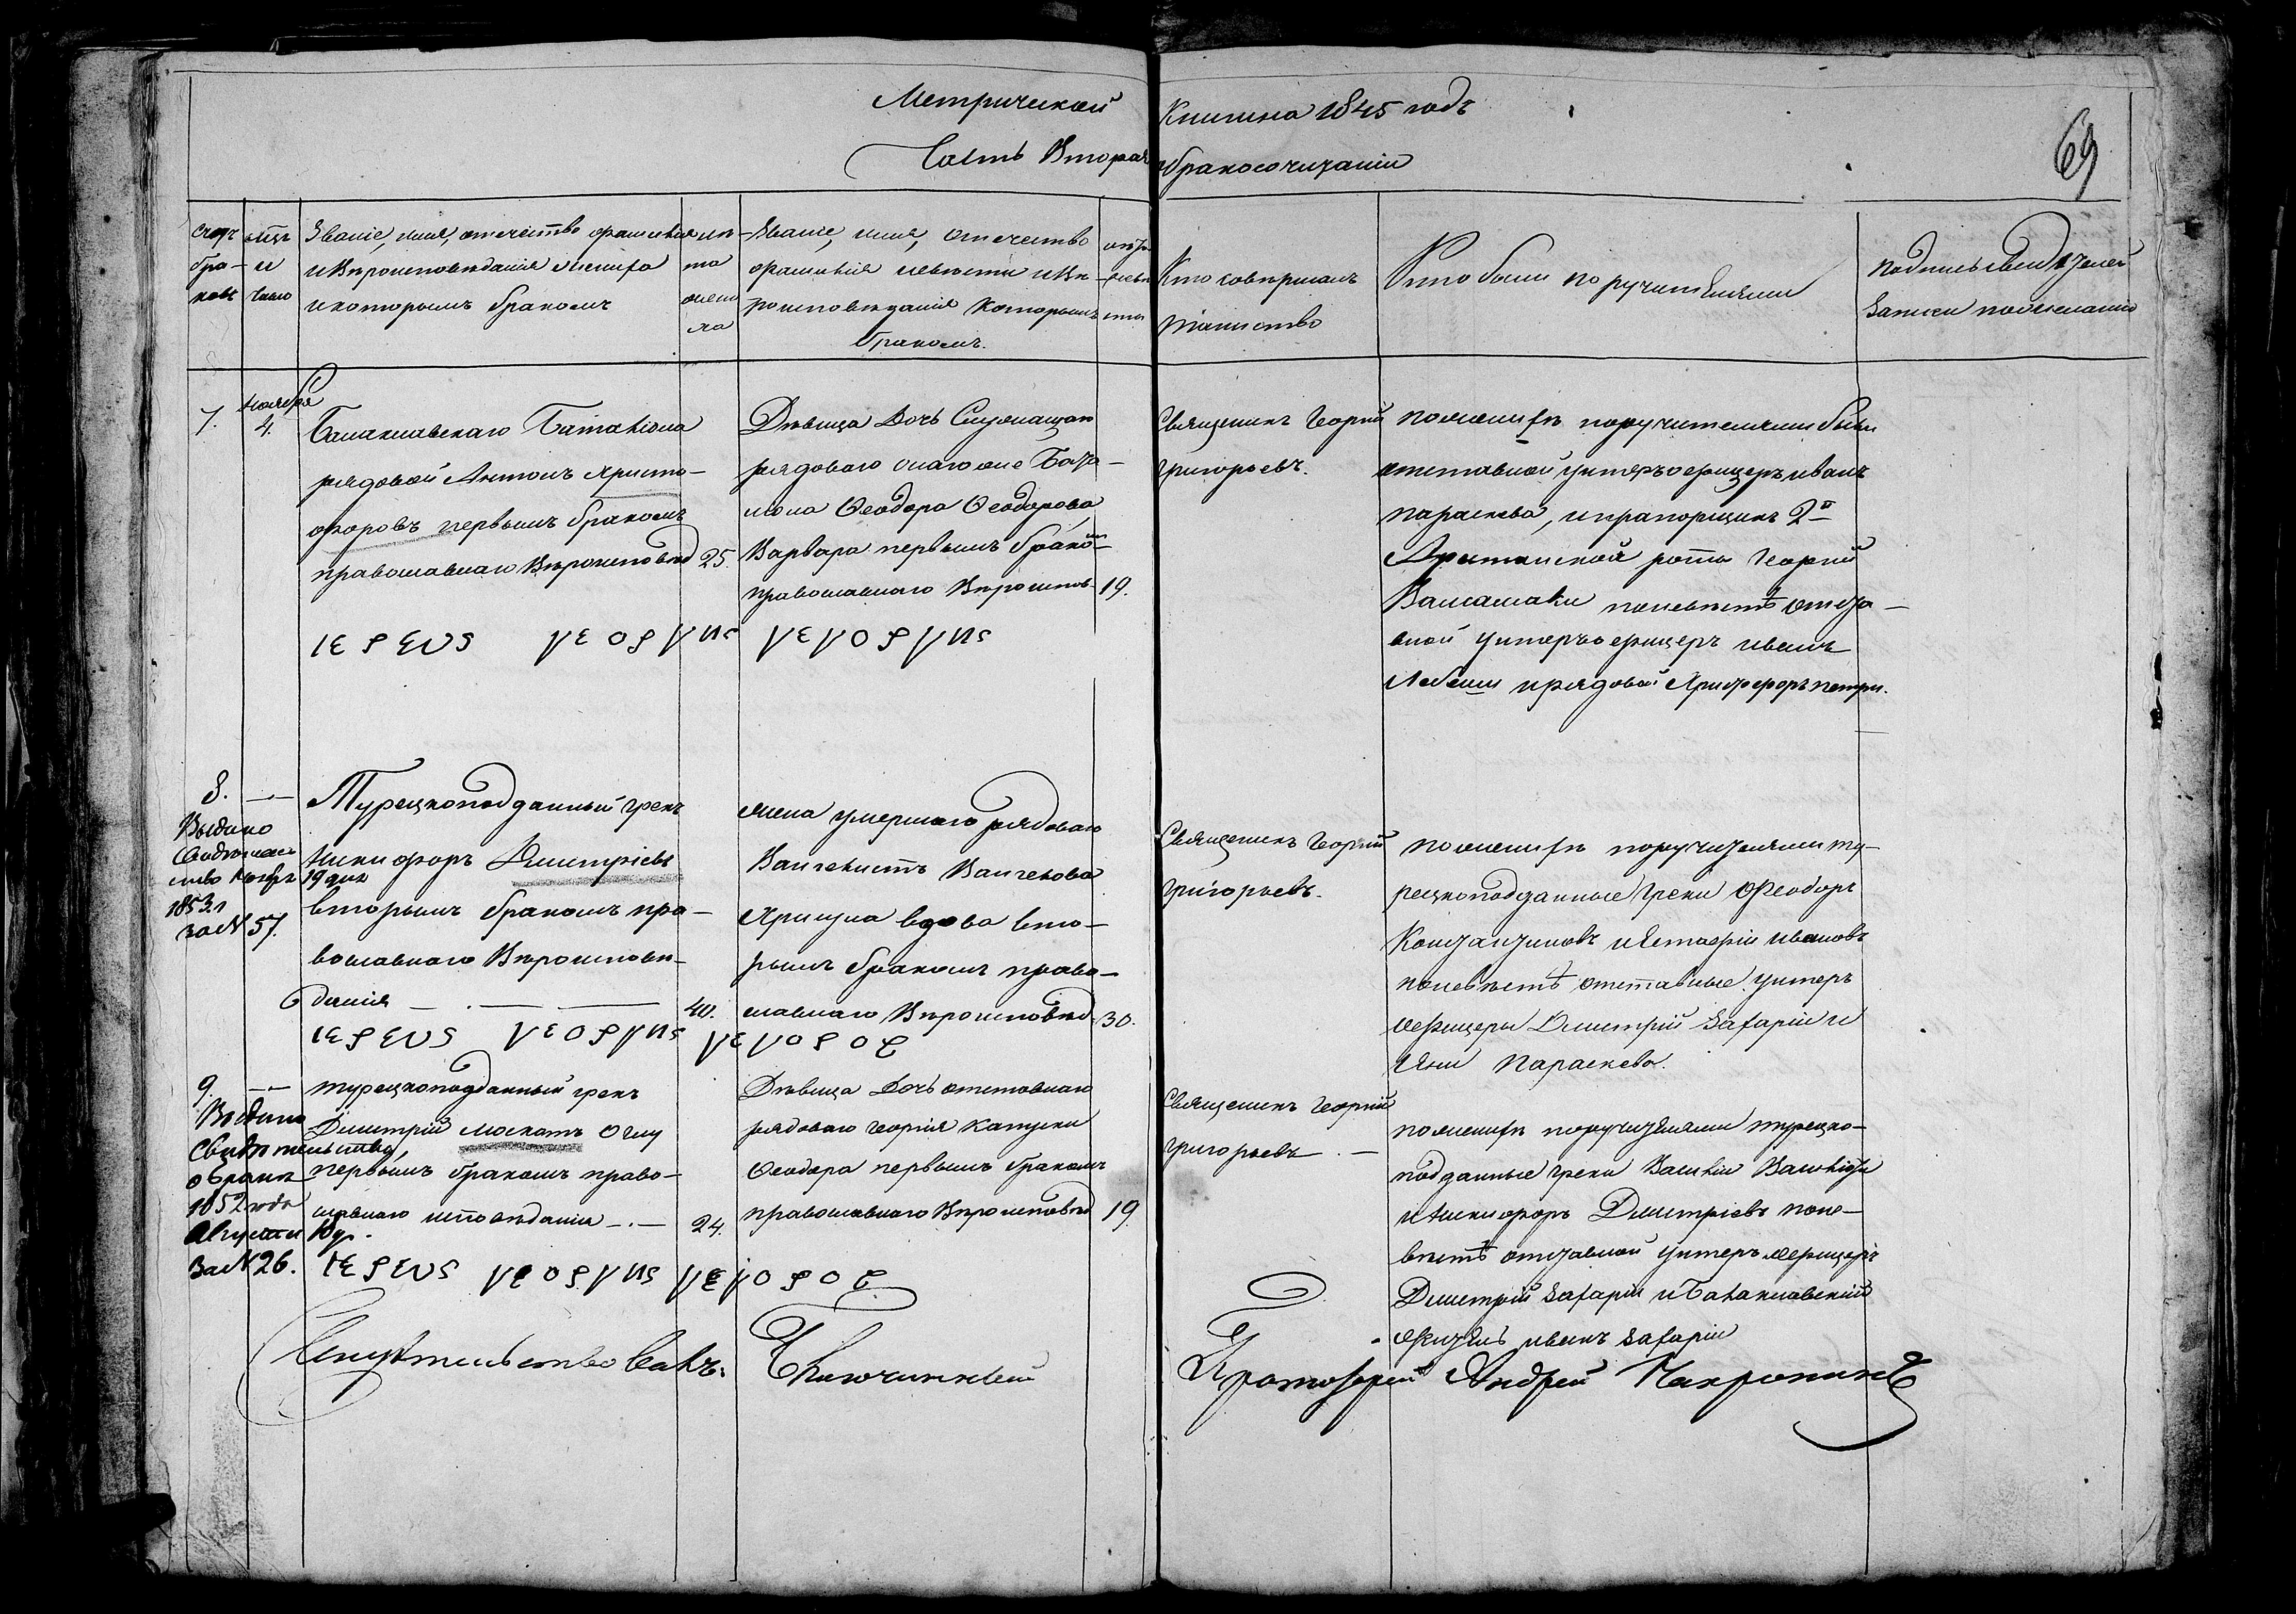 Метрической Книги на 1845 годъ
Часть Вторая о бракосочитаніи
69
счетъ браковъ
мѣцъ и число
Званіе, имя, отечество фамилія
и вѣроисповѣданія жениха
и которымъ бракомъ
лѣта жениха
Званіе, имя, отечество
фамилія невѣсты и вѣ-
роисповѣданія которымъ
бракомъ.
лѣта невѣсты
Кто совершалъ
таинство
Кто были поручителями
подпись свидѣтелей
записи по желанію
7.
Ноября
4.
Балаклавскаго Баталіона
рядовой Антонъ Христо-
форовъ первымъ бракомъ
православнаго Вѣроисповѣд
25.
Дѣвица Дочь Служащаго
рядоваго онаго же Бата-
ліона Ѳеодора Ѳеодорова
Варвара первымъ брако-
православнаго Вѣроиспов-
19.
ιερευς γεοργιυς γεγοργιυς
Священикъ Георгій
григорьевъ.
по женихѣ поручителями были
отставной унтеръ офицеръ иванъ
параскева, и прапорщикъ 2й
Аритинской роты Георгій
поневѣстѣ отста-
вной унтеръ офицеръ иванъ
и рядовой Христофоръ петри.
8.
Выдано
Свидѣтель-
ство Ноябр 19 дня
1853 г
за № 57.
Турецкоподданный грекъ
Никифоръ Дмитріевъ
вторымъ бракомъ пра-
вославнаго Вѣроисповѣ-
данія
40.
жена умершаго рядоваго
Хрисула вдова вто-
рымъ бракомъ право-
славнаго Вѣроисповѣд
30.
ιερευς γεοργιυς γεγορος
Священикъ Георгій
григорьевъ.
по женихѣ поручителями ту-
рецкоподданные греки Ѳеодоръ
Константиновъ и Евстафій ивановъ
по невѣстѣ отставные унтеръ
офицеры Дмитрій Сафарій и
Яни Параскева.
9.
Выдано
Свидѣтельство,
о бракѣ
1852 года
Августа 10 д.
За № 26.
турецкоподданный грекъ
Димитрій москатъ Оглу
первымъ бракомъ право-
славнаго исповѣданія
24.
Дѣвица Дочь отставнаго
рядоваго Георгія Капуски
Ѳеодора первымъ бракомъ
православнаго Вѣроисповѣд
19
ιερευς γεοργιυς γεγορος
Священикъ Георгій
григорьевъ
по женихѣ поручителями турецко-
подданные греки Василій Василіовъ
и Никифоръ Дмитріевъ поне-
вѣстѣ отставной унтеръ офицеръ
Димитрій Сафарій и Балаклавскій
житель иванъ Сафарій
Свидѣтельствовалъ: Благочинный
Протоіерей Андрей